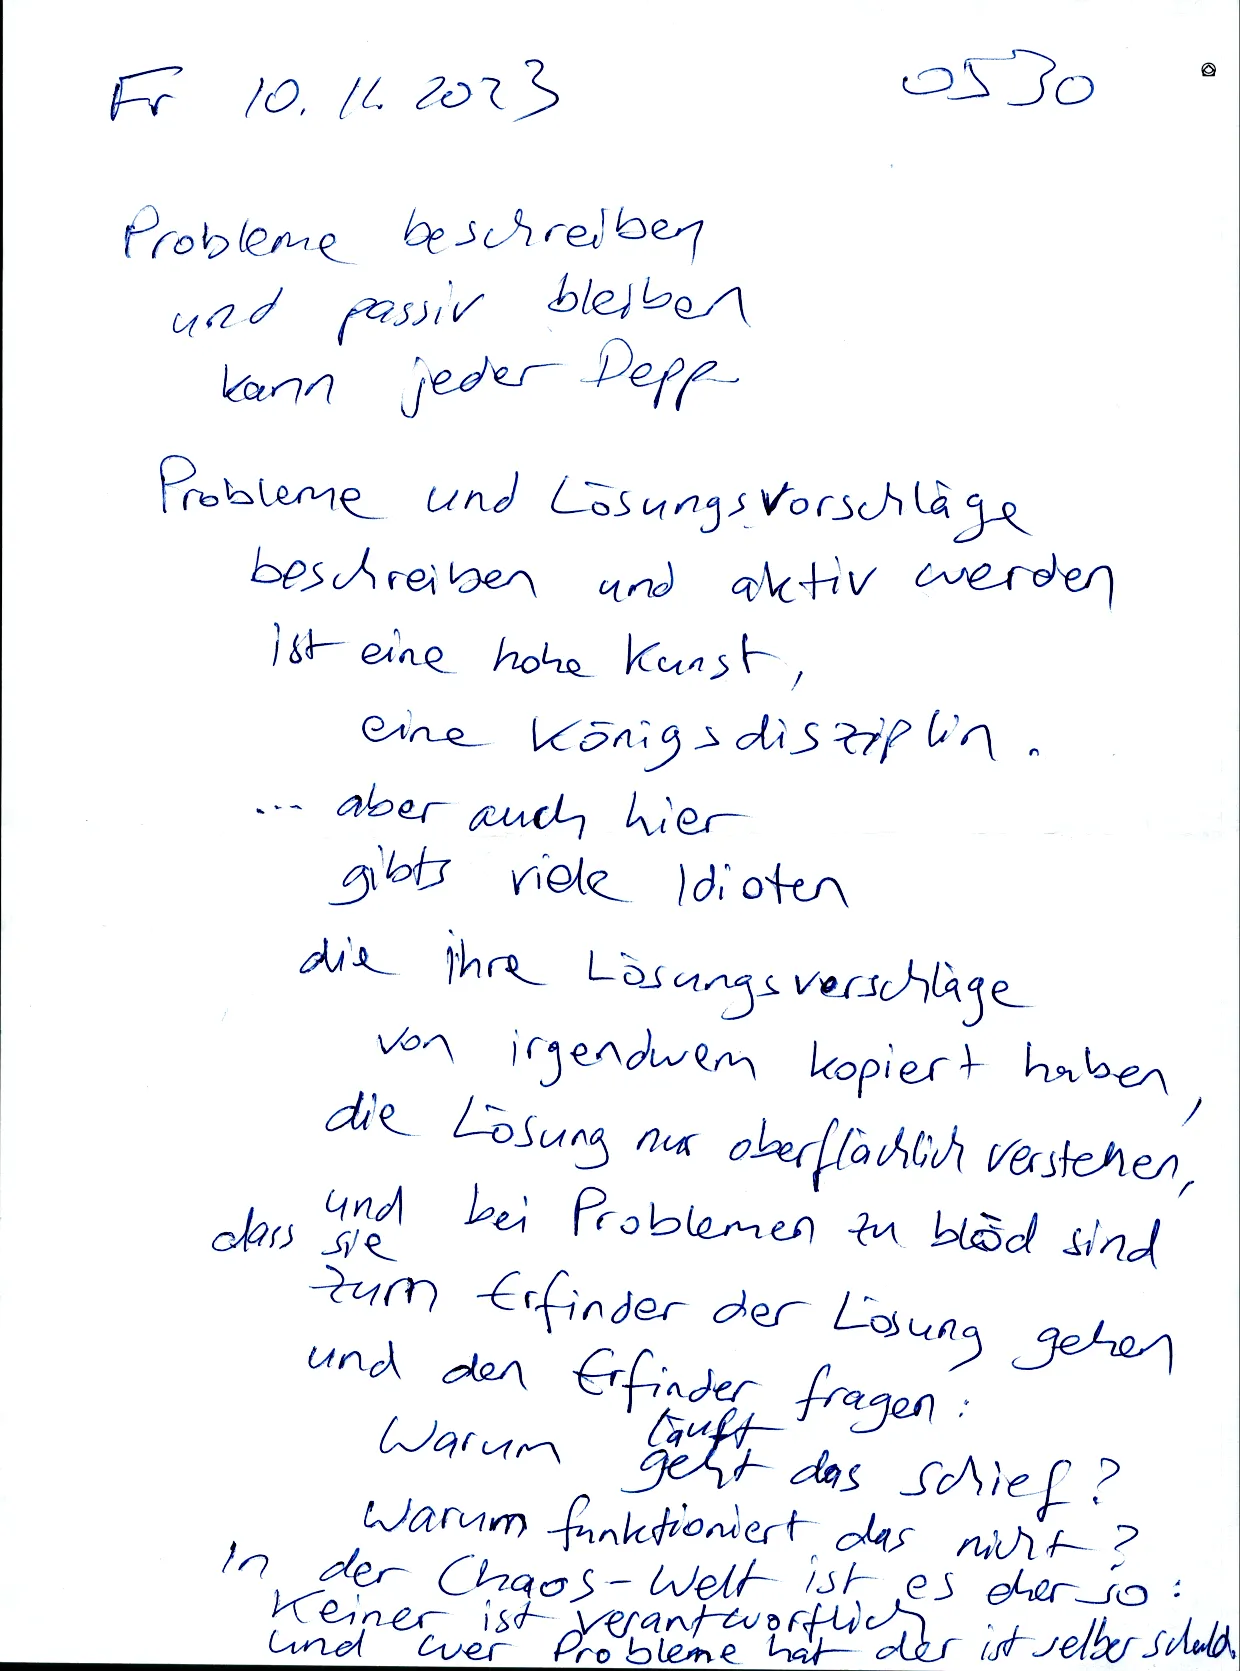 Fr 10.11.2023 0530
Probleme beschreiben
und passiv bleiben
kann jeder Depp
Probleme und Lösungsvorschläge
beschreiben und aktiv werden
ist eine hohe Kunst,
eine Königsdisziplin.
... aber auch hier
gibts viele Idioten
die ihre Lösungsvorschläge
von irgendwem kopiert haben,
die Lösung nur oberflächlich verstehen,
und bei Problemen zu blöd sind
dass sie
zum Erfinder der Lösung gehen
und den Erfinder fragen:
läuft
Warum geht das schief?
Warum funktioniert das nicht?
In der Chaos-Welt ist es eher so:
Keiner ist verantwortlich
und wer Probleme hat der ist selber schuld.